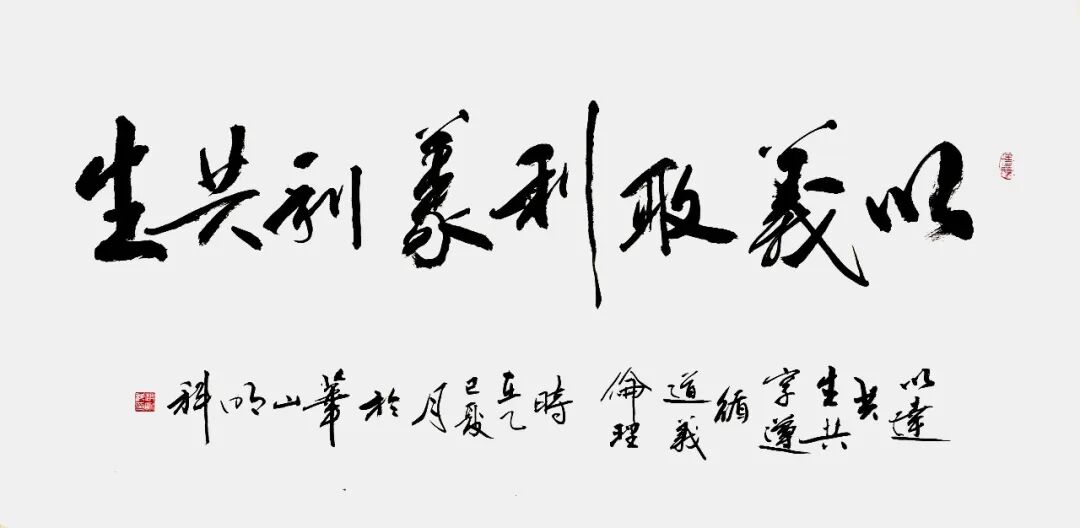 以義取利義利共生
以達共生共享遵循道義倫理 時在乙巳夏月於華山明科